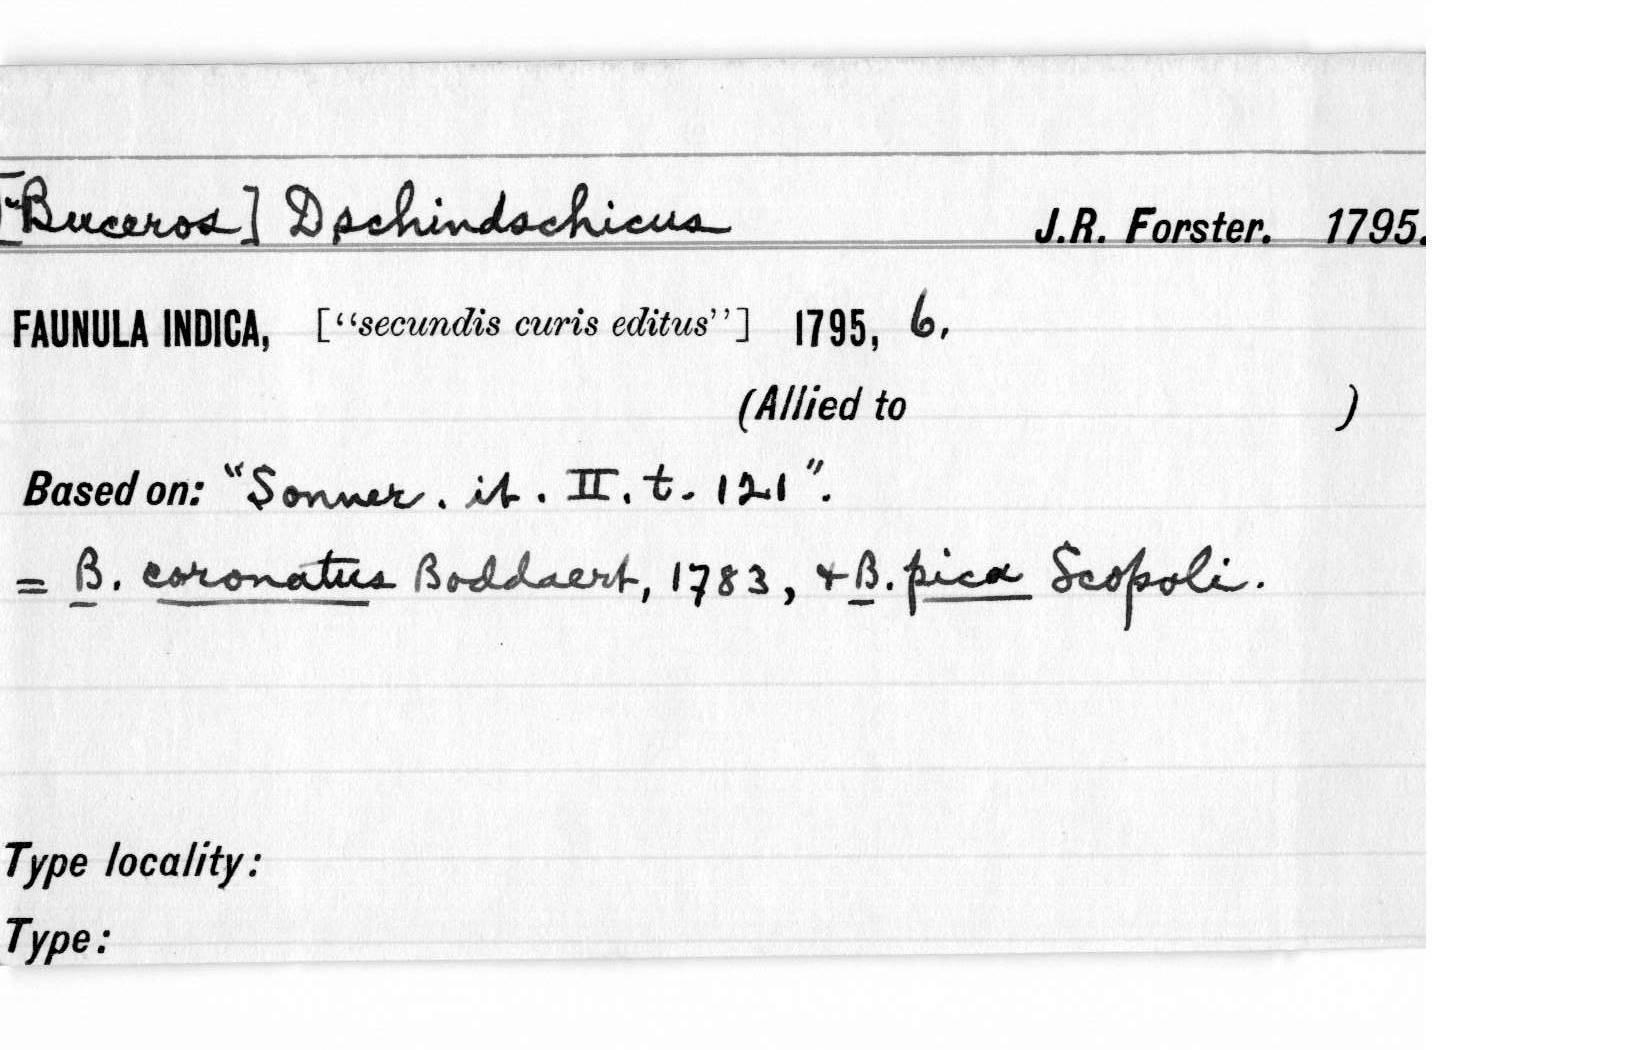 [Buceros] Dschindschicus J.R. Forster. 1795.
FAUNULA INDICA, ["secundis curis editus"] 1795, 6,
(Allied to )
Based on: "Sonner. it. II. t. 121".
= B. coronatus Boddaert, 1783, + B. pica Scopoli.
Type locality:
Type: